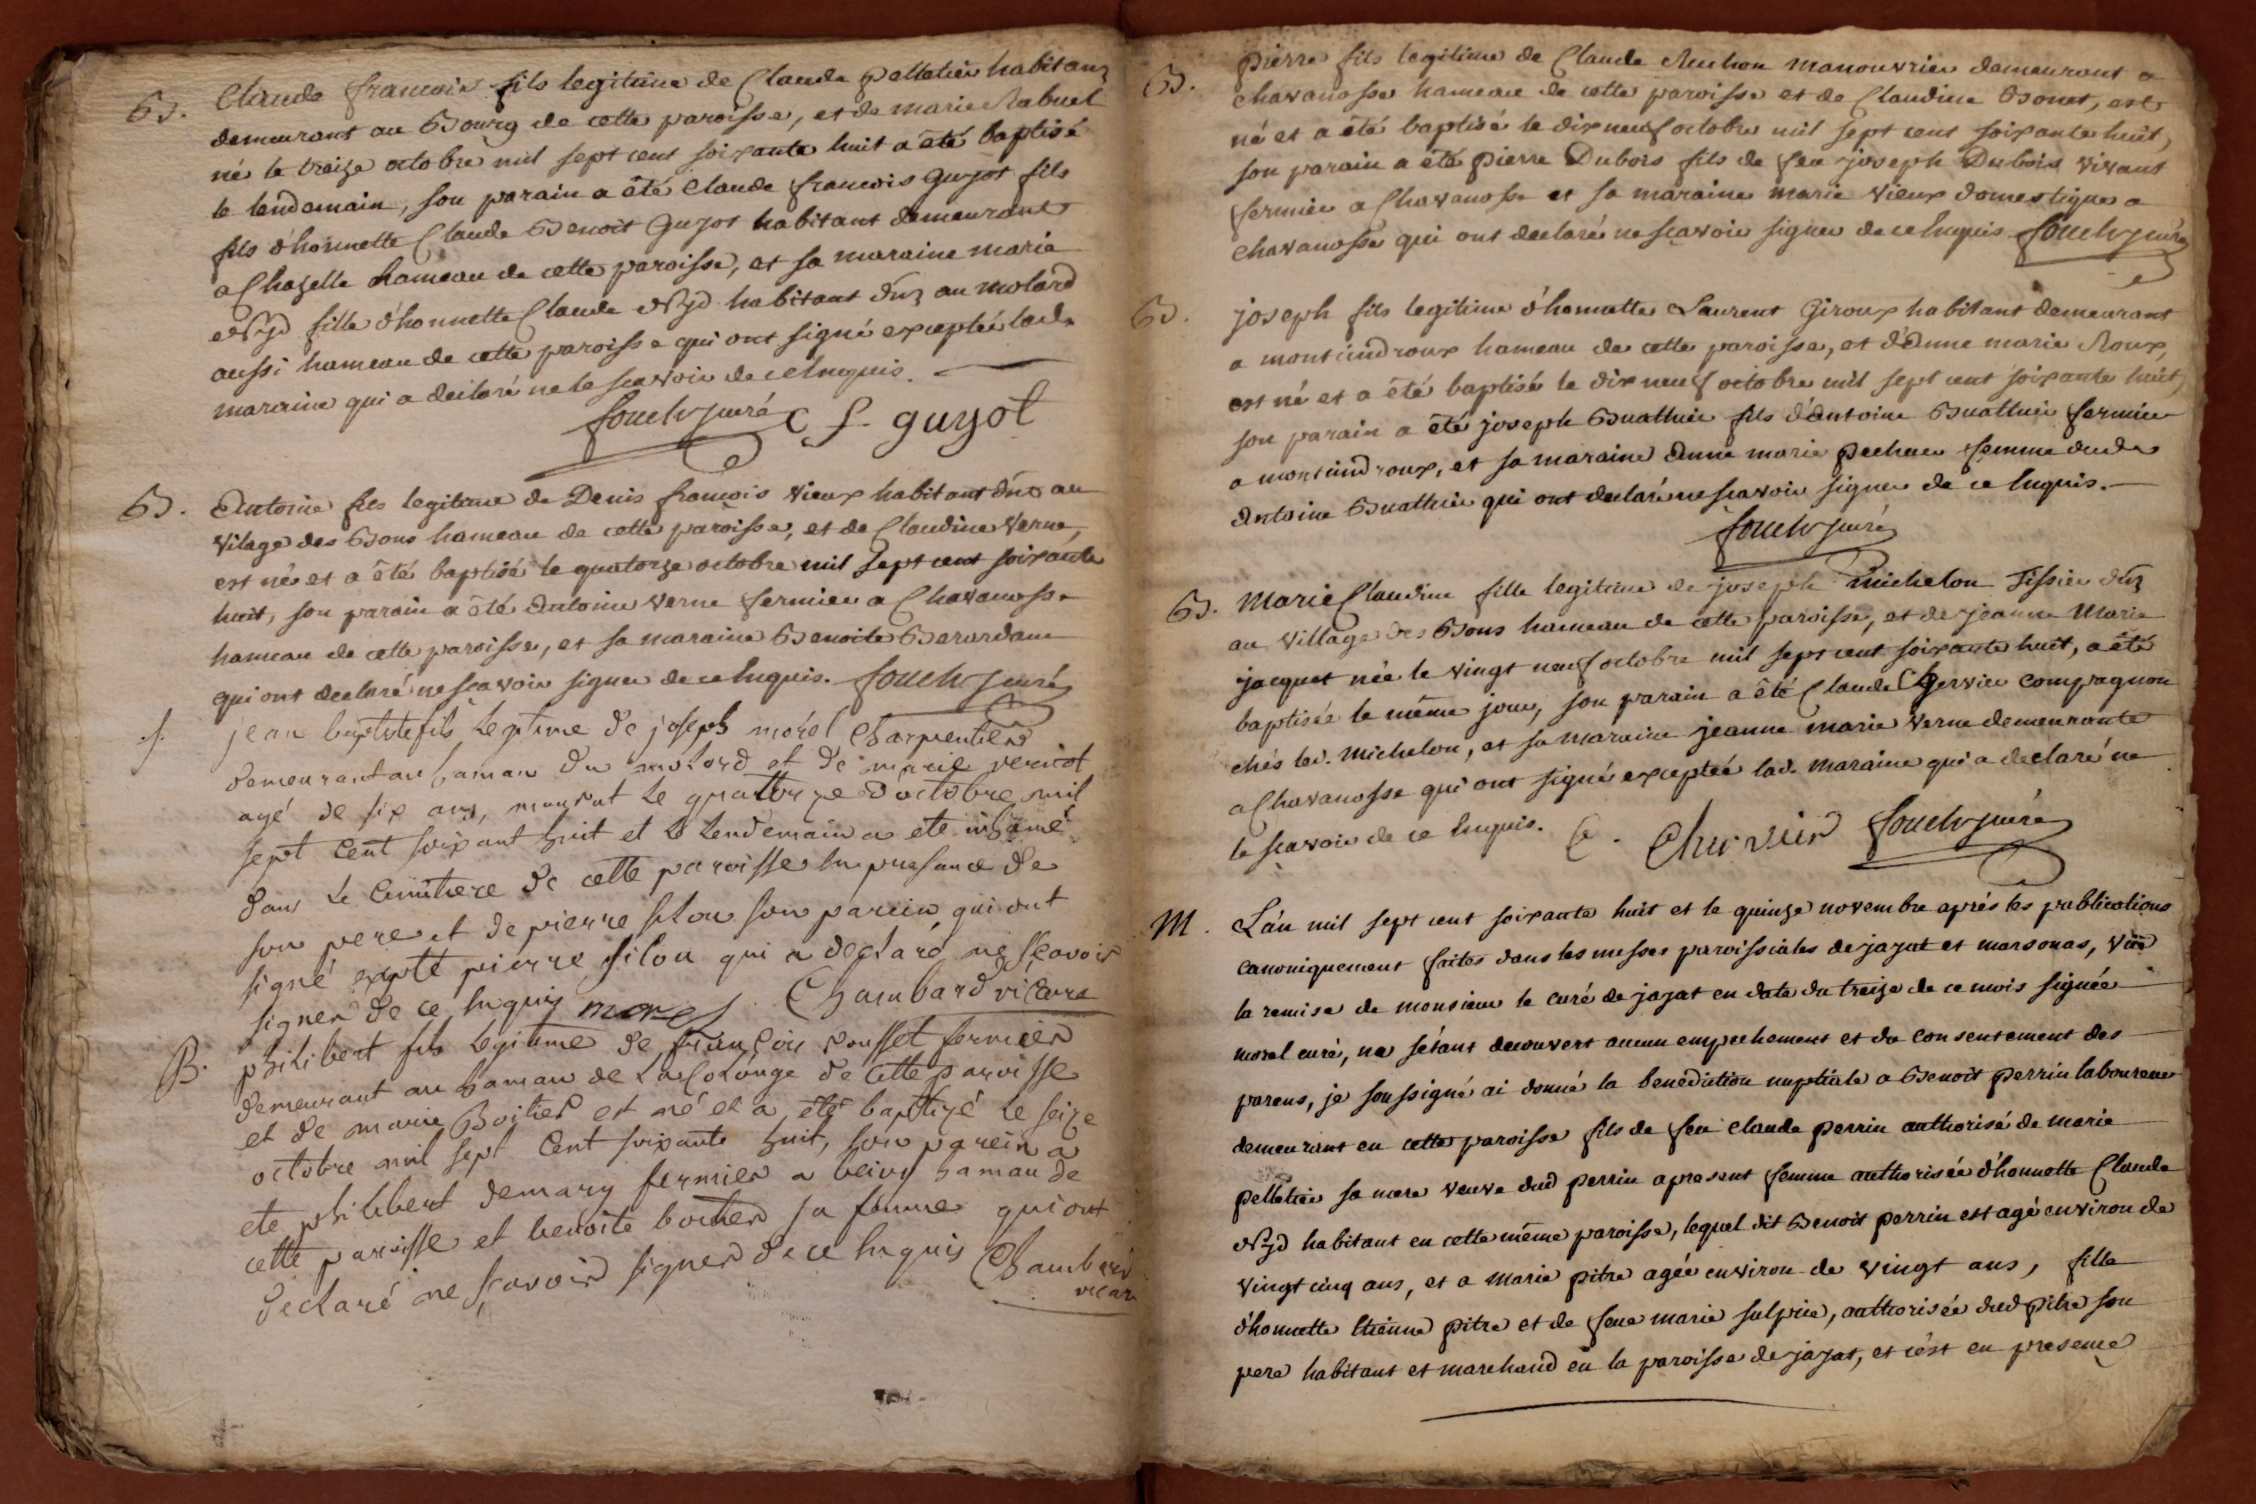 B. Claude francois fils legitime de Claude pelletier habitant
demeurant au Bourg de cette paroisse, et de marie Rabuel
né le treize octobre mil sept cent soixante huit a été baptisé
le lendemain, son parain a été Claude francois Guyot fils
fils d'honnette Claude Benoit Guyot habitant demeurant
a Chazelle hameau de cette paroisse, et sa maraine marie
Nyd fille d'honnette Claude Nyd habitant dnt au molard
aussi hameau de cette paroisse qui ont signé exceptée lade
maraine qui a declaré ne le scavoir de ce Enquis.
C f. guyot
B. Antoine fils legitime de Denis francois vieux habitant dnt au
vilage des Bons hameau de cette paroisse, et de Claudine verne,
est né et a été baptisé le quatorze octobre mil sept cent soixante
huit, son parain a été Antoine verne fermier a Chavanosse
hameau de cette paroisse, et sa maraine Benoite Berardam
qui ont declaré ne scavoir signer de ce Enquis.
S. jean baptiste fils Legitime de joseph morel Charpentier
demeurant au hamau du molard et de marie pericot
agé de six ans, mourut le quattorze d'octobre mil
sept cent soixant huit et le Lendemain a eté inhumé
dans Le Cimitiere de cette paroisse En presance de
son pere et de pierre filon son parein qui ont
signé expté pierre filon qui a declaré ne sçavoir
signer de ce Enquis morel Chambard vicaire
B. philibert fils Legitime de françois rousset fermier
demeurant au hamau de La Colonge de Cette paroisse
et de marie Boitier est né et a été baptizé Le seize
octobre mil sept Cent soixante huit, son parein a
ete philibert demary fermier a beivy hamau de
cette paroisse et benoite boitier sa femme qui ont
declaré ne sçavoir signer de ce Enquis Chambard
vicaire
B. pierre fils legitime de Claude Ruchon manouvrier demeurant a
chavanosse hameau de cette paroisse et de Claudine Bonet, est
né et a été baptisé le dix neuf octobre mil sept cent soixante huit,
son parain a été pierre Dubois fils de feu joseph Dubois vivant
fermier a Chavanosse et sa maraine marie vieux domestique a
chavanosse qui ont declaré ne scavoir signer de ce Enquis
B. joseph fils legitime d'honnette Laurent Giroux habitant demeurant
a montcindroux hameau de cette paroisse, et d'Anne marie Roux,
est né et a été baptisé le dix neuf octobre mil sept cent soixante huit,
son parain a été joseph Buathier fils d'Antoine Buathier fermier
a montcindroux, et sa maraine Anne marie pechuer femme dud
Antoine Buathier qui ont declaré ne scavoir signer de ce Enquis.
B. Marie Claudine fille legitime de joseph michelon Tissier dnt
au village des Bons hameau de cette paroisse, et de jeanne Marie
jacquet née le vingt neuf octobre mil sept cent soixante huit, a été
baptisée le même jour, son parain a été Claude Chervier compagnon
chés led. Michelon, et sa maraine jeanne marie verne demeurante
a Chavanosse qui ont signé exceptée lad. maraine qui a declaré ne
le scavoir de ce Enquis. C. Chervier
M. L'an mil sept cent soixante huit et le quinze novembre aprés les publications
canoniquement faites dans les messes paroissiales de jayat et marsonas, vûe
la remise de monsieur le curé de jayat en date du treize de ce mois signée
morel curé, ne s'étant decouvert aucun empechement et du consentement des
parens, je soussigné ai donné la benediction nuptiale a Benoit perrin laboureur
demeurant en cette paroisse fils de feu claude perrin authorisé de marie
pelletier sa mere veuve dud perrin apresent femme authorisée d'honnette Claude
Nyd habitant en cette même paroisse, lequel dit Benoit perrin est agé environ de
vingt cinq ans, et a marie pitre agée environ de vingt ans, fille
d'honnette Etienne pitre et de feue marie sulpice, authorisée dud pitre son
pere habitant et marchand en la paroisse de jayat, et c'est en presence